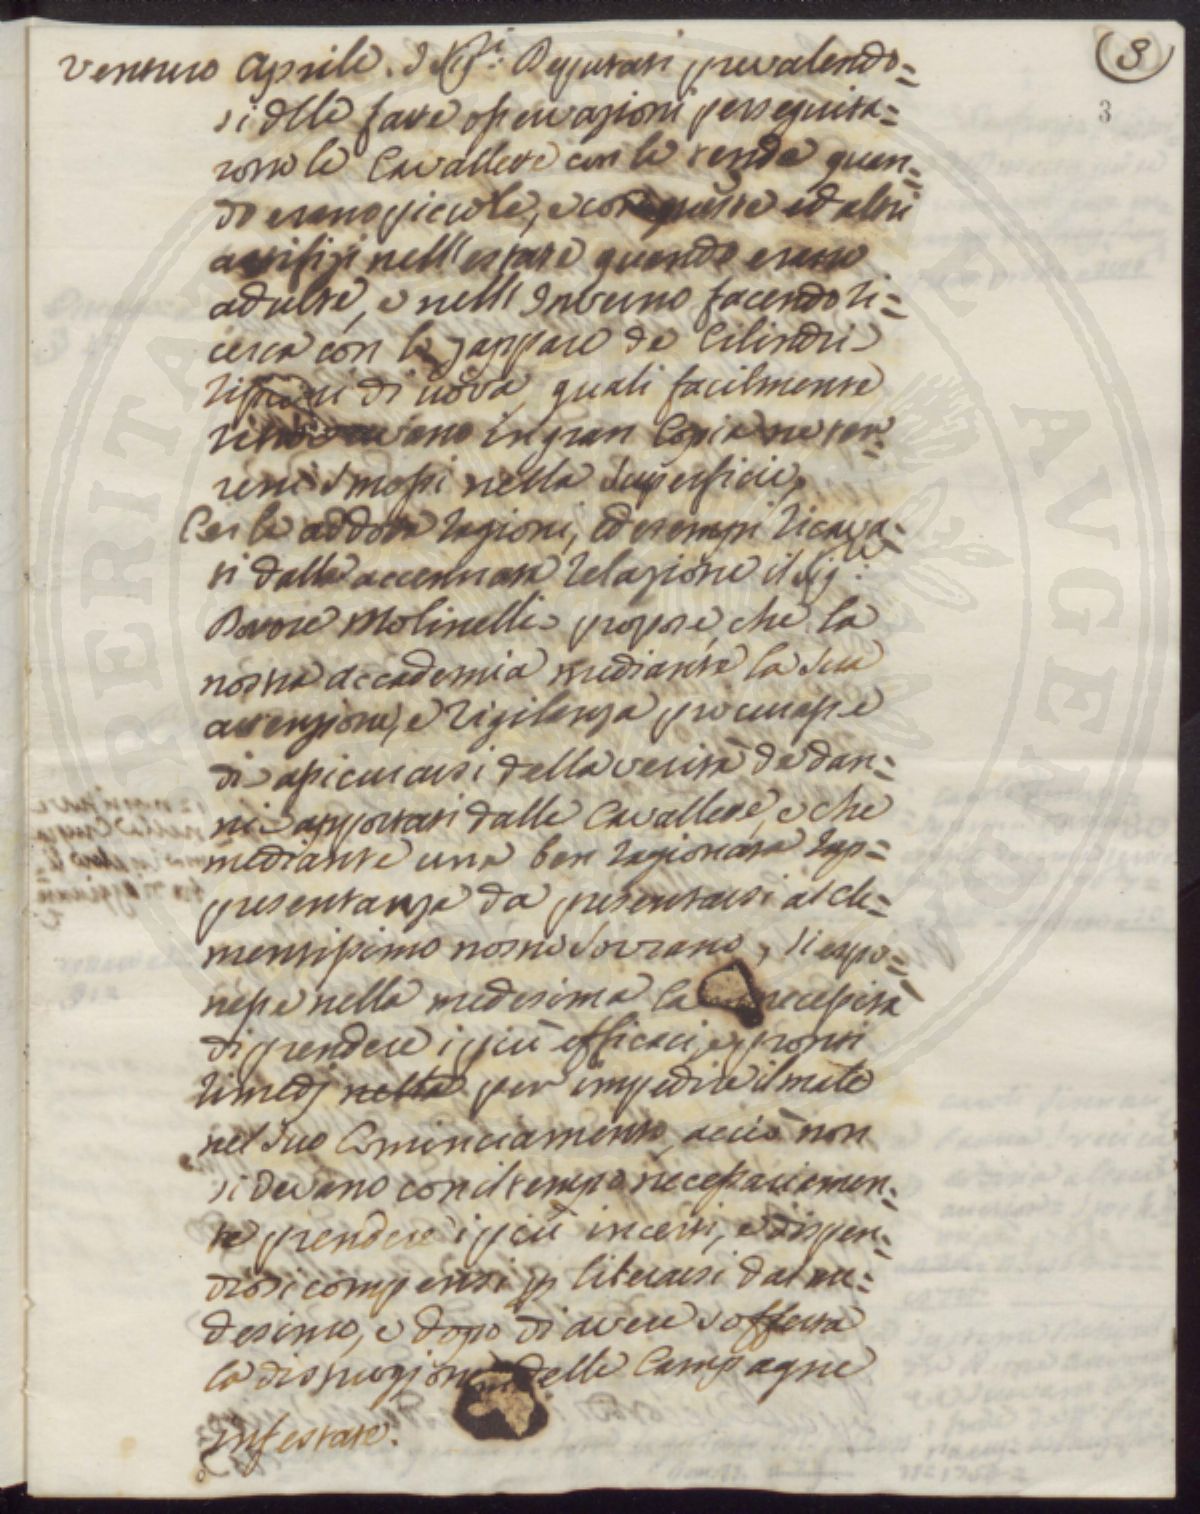 (3)
3
venturo Aprile. I Sig.ri Deputati prevalendo=
si dlle fatte osservazioni perseguita=
rono le Cavallette con le tende quan=
do erano piccole, e con queste ed altri
artifizj nell'estate quando erano
adulte, e nell'Inverno facendo ri=
cerca con le zappare de Cilindri
ripieni di uova, quali facilmente
in gran Copia ne ter=
reni smossi nella Superficie.
Per le addotte ragioni, ed esempi ricava=
ti dalla accennata relazione il Sig.re
Dottore Molinelli propose, che la
nostra Accademia mediante la Sua
attenzione, e Vigilanza procurasse
di assicurarsi della verità de dan=
ni apportati dalle Cavallette, e che
mediante una ben ragionata rap=
presentanza da presentarsi al Cle=
mentissimo nostro Sovrano, si espo=
nesse nella medesima la necessità
di prendere i più efficaci, e pronti
rimedj nella per impedire il male
nel suo Cominciamento, acciò non
si devano con il tempo necessariamen=
te prendere i più incerti, e dispen=
diosi compensi p liberarsi dal me=
desimo, e dopo di avere sofferta
la distruzione delle Campagne
infestate.
PERITATE AVGENDO